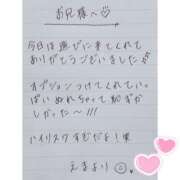 お兄様へ♡
今日は遊びに来てくれて
ありがとうございました
オプションつけてくれていっ
ぱいぬれちゃって恥ずか
しかった〜!!!
ハイリスクすぎだよ!笑
えまより